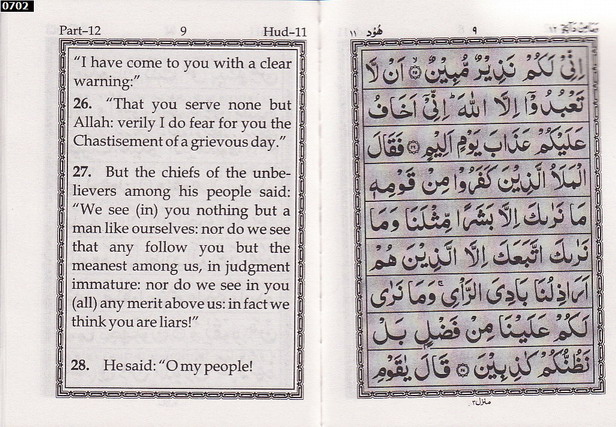 0702
Part-12 9 Hud-11
"I have come to you with a clear
warning:"
26. "That you serve none but
Allah: verily I do fear for you the
Chastisement of a grievous day."
27. But the chiefs of the unbe-
lievers among his people said:
"We see (in) you nothing but a
man like ourselves: nor do we see
that any follow you but the
meanest among us, in judgment
immature: nor do we see in you
(all) any merit above us: in fact we
think you are liars!"
28. He said: "O my people!
هُوْد ١١ ٩
اِنِّیْ لَكُمْ نَذِیْرٌ مُّبِیْنٌ ۝۲۵ اَنْ لَّا
تَعْبُدُوْۤا اِلَّا اللّٰهَ ؕ اِنِّیْۤ اَخَافُ
عَلَیْكُمْ عَذَابَ یَوْمٍ اَلِیْمٍ ۝۲۶ فَقَالَ
الْمَلَاُ الَّذِیْنَ كَفَرُوْا مِنْ قَوْمِهٖ
مَا نَرٰىكَ اِلَّا بَشَرًا مِّثْلَنَا وَمَا
نَرٰىكَ اتَّبَعَكَ اِلَّا الَّذِیْنَ هُمْ
اَرَاذِلُنَا بَادِیَ الرَّاْیِ ۚ وَمَا نَرٰی
لَكُمْ عَلَیْنَا مِنْ فَضْلٍۭ بَلْ
نَظُنُّكُمْ كٰذِبِیْنَ ۝۲۷ قَالَ یٰقَوْمِ
منزل ٣